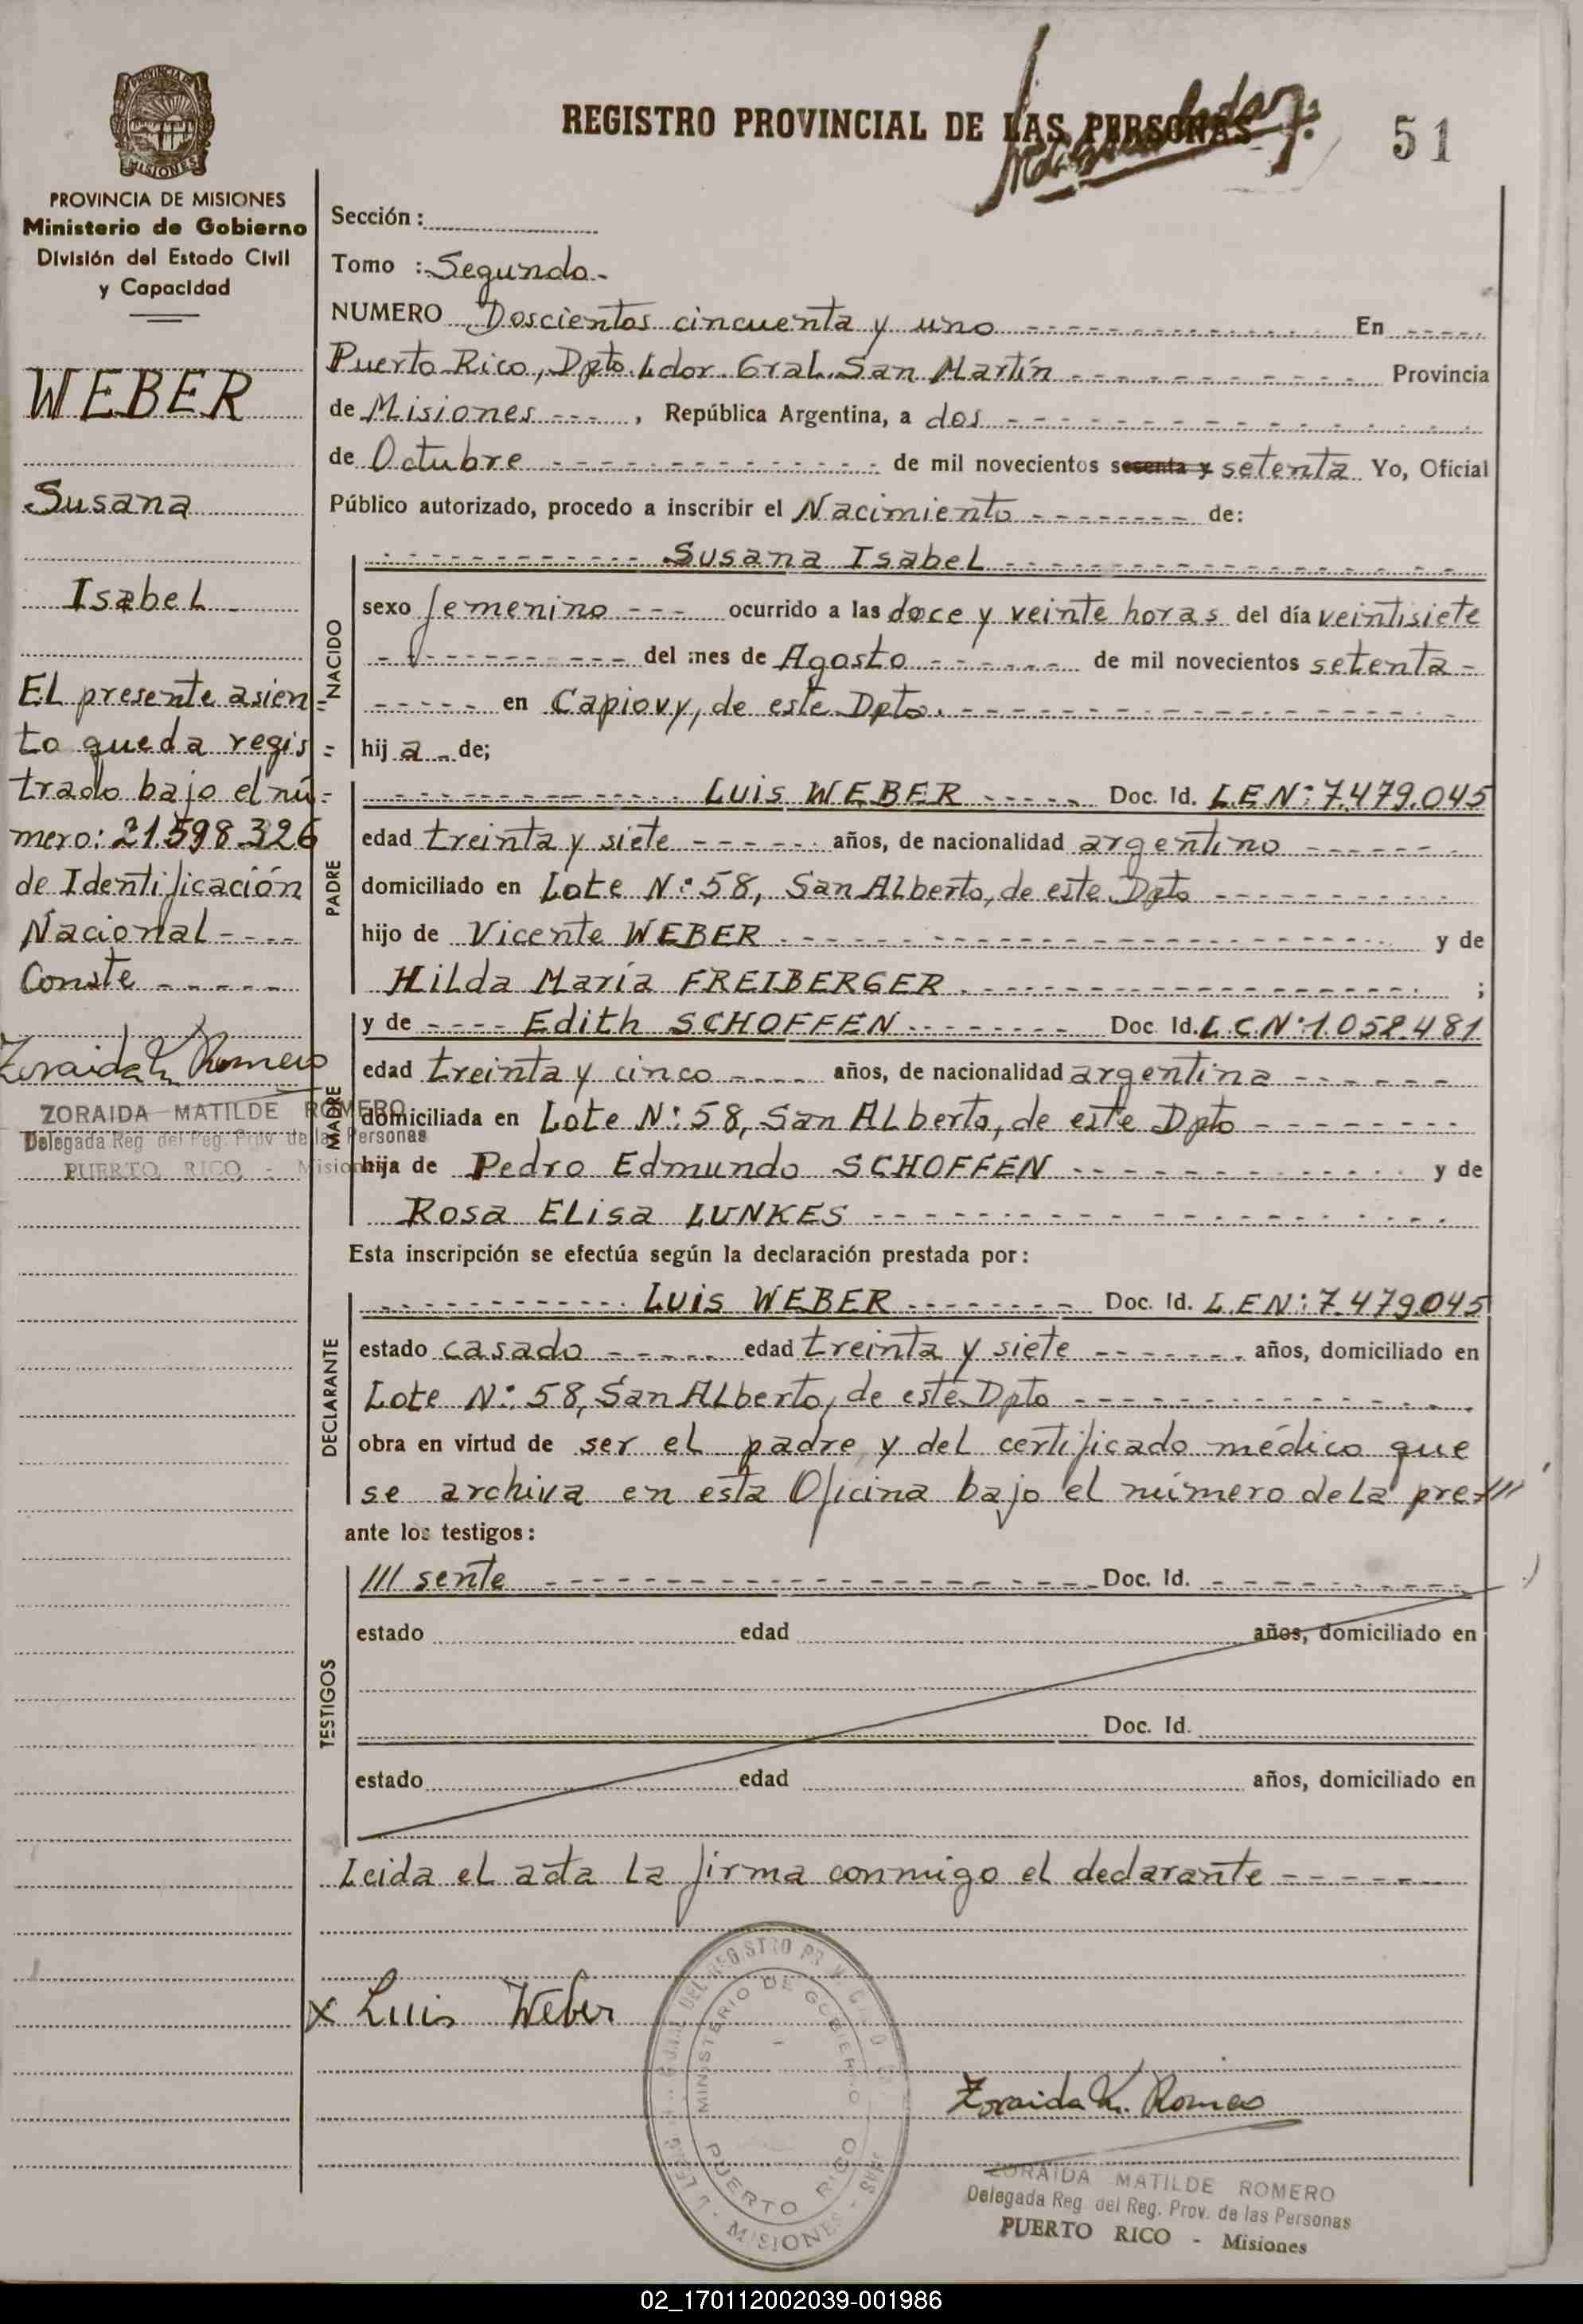 REGISTRO PROVINCIAL DE LAS PERSONAS
51
PROVINCIA DE MISIONES
Ministerio de Gobierno
División del Estado Civil
y Capacidad
WEBER
Susana
Isabel
El presente asien=
to queda regis=
trado bajo el nú=
mero: 21.598.326
de Identificación
Nacional ----
Conste -----
Zoraida M. Romero
ZORAIDA MATILDE ROMERO
Delegada Reg. del Reg. Prov. de las Personas
PUERTO RICO - Misiones
Sección:
Tomo: Segundo.-
NUMERO Doscientos cincuenta y uno En
Puerto Rico, Dpto. Ldor. Gral. San Martín Provincia
de Misiones ---, República Argentina, a dos
de Octubre de mil novecientos sesenta y setenta Yo, Oficial
Público autorizado, procedo a inscribir el Nacimiento de:
NACIDO
Susana Isabel
sexo femenino --- ocurrido a las doce y veinte horas del día veintisiete
del mes de Agosto de mil novecientos setenta -
en Capiovy, de este Dpto.
hija - de;
PADRE
Luis WEBER Doc. Id. L.E.Nº 7.479.045
edad treinta y siete años, de nacionalidad argentino
domiciliado en Lote Nº 58, San Alberto, de este Dpto
hijo de Vicente WEBER y de
Hilda María FREIBERGER ;
MADRE
y de ---- Edith SCHOFFEN Doc. Id. L.C.Nº 1.052.481
edad treinta y cinco años, de nacionalidad argentina
domiciliada en Lote Nº 58, San Alberto, de este Dpto
hija de Pedro Edmundo SCHOFFEN y de
Rosa Elisa LUNKES
Esta inscripción se efectúa según la declaración prestada por:
DECLARANTE
Luis WEBER Doc. Id. L.E.Nº 7.479.045
estado casado edad treinta y siete años, domiciliado en
Lote Nº 58, San Alberto, de este Dpto
obra en virtud de ser el padre y del certificado médico que
se archiva en esta Oficina bajo el número de la pre///
ante los testigos:
TESTIGOS
/// sente Doc. Id.
estado edad años, domiciliado en
Doc. Id.
estado edad años, domiciliado en
Leida el acta la firma conmigo el declarante
x Luis Weber
MINISTERIO DE GOBIERNO
PUERTO RICO
MISIONES
Zoraida M. Romero
ZORAIDA MATILDE ROMERO
Delegada Reg. del Reg. Prov. de las Personas
PUERTO RICO - Misiones
02_170112002039-001986